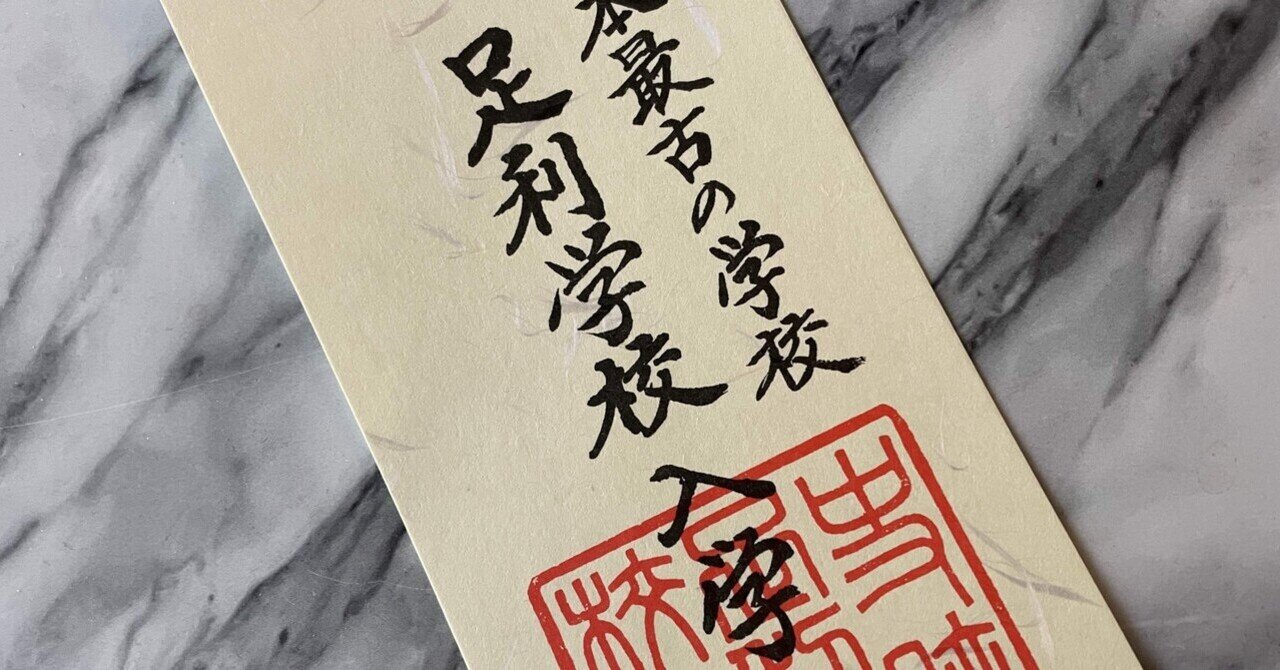 本最古の学校
足利学校
入学